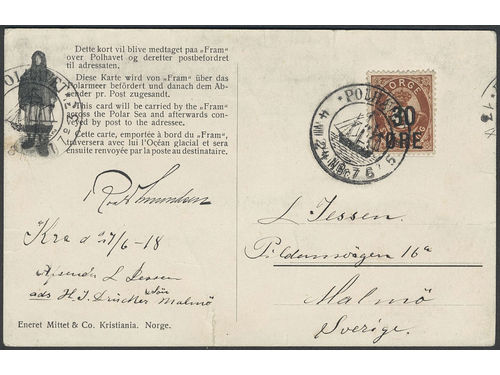 Dette kort vil blive medtaget paa „Fram“
over Polhavet og deretter postbefordret
til adressaten.
Diese Karte wird von „Fram“ über das
Polarmeer befördert und danach dem Ab-
sender pr. Post zugesandt.
This card will be carried by the „Fram“
across the Polar Sea and afterwards con-
veyed by post to the adressee.
Cette carte, emportée à bord du „Fram“
traversera avec lui l'Océan glacial et sera
ensuite renvoyée par la poste au destinataire.
Roald Amundsen
Kra d 27/6-18
Afsender L Jessen
ads H. J. Drücker Malmö
Eneret Mittet & Co. Kristiania. Norge.
POLHAV
NORGE
30
ØRE
L Jessen
Pildammsvägen 16a
Malmö
Sverige.